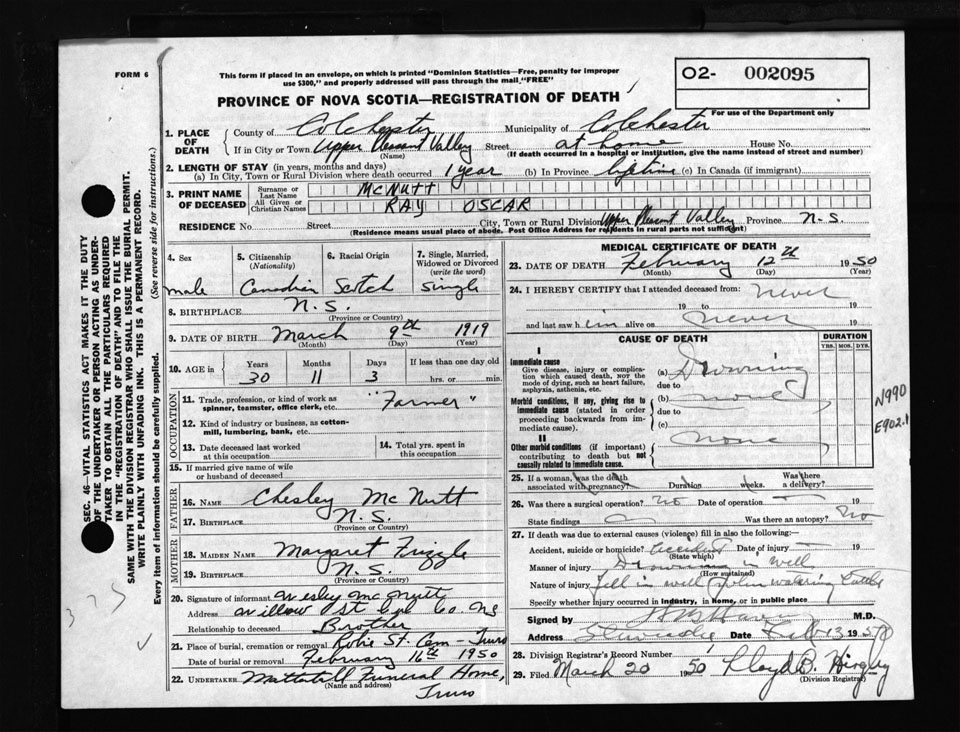 FORM 6
This form if placed in an envelope, on which is printed "Dominion Statistics—Free, penalty for improper
use $300," and properly addressed will pass through the mail "FREE"
O2- 002095
PROVINCE OF NOVA SCOTIA—REGISTRATION OF DEATH
For use of the Department only
1. PLACE OF DEATH County of Colchester Municipality of Colchester
If in City or Town Upper Pleasant Valley Street at home House No.
(Name) (If death occurred in a hospital or institution, give the name instead of street and number)
2. LENGTH OF STAY (in years, months and days)
(a) In City, Town or Rural Division where death occurred 1 year (b) In Province lifetime (c) In Canada (if immigrant)
3. PRINT NAME OF DECEASED Surname or Last Name McNUTT
All Given or Christian Names RAY OSCAR
RESIDENCE No. Street City, Town or Rural Division Upper Pleasant Valley Province N.S.
(Residence means usual place of abode. Post Office Address for residents in rural parts not sufficient)
4. Sex male
5. Citizenship (Nationality) Canadian
6. Racial Origin Scotch
7. Single, Married, Widowed or Divorced (write the word) Single
8. BIRTHPLACE N.S.
(Province or Country)
9. DATE OF BIRTH March 9th 1919
(Month) (Day) (Year)
10. AGE in Years 30 Months 11 Days 3 If less than one day old hrs. or min.
OCCUPATION
11. Trade, profession, or kind of work as spinner, teamster, office clerk, etc. "Farmer"
12. Kind of industry or business, as cotton-mill, lumbering, bank, etc.
13. Date deceased last worked at this occupation
14. Total yrs. spent in this occupation
15. If married give name of wife or husband of deceased
FATHER
16. NAME Chesley McNutt
17. BIRTHPLACE N.S.
(Province or Country)
MOTHER
18. MAIDEN NAME Margaret Frizzle
19. BIRTHPLACE N.S.
(Province or Country)
20. Signature of informant Wesley McNutt
Address Willow St Col Co. NS
Relationship to deceased Brother
21. Place of burial, cremation or removal Robie St. Cem - Truro
Date of burial or removal February 16th 1950
22. UNDERTAKER Mattatall Funeral Home,
(Name and address) Truro
MEDICAL CERTIFICATE OF DEATH
23. DATE OF DEATH February 12th 1950
(Month) (Day) (Year)
24. I HEREBY CERTIFY that I attended deceased from: never
19 to 19
and last saw him alive on never 19
CAUSE OF DEATH
DURATION
YRS. MOS. DYS.
I
Immediate cause
Give disease, injury or complication which caused death, NOT the mode of dying, such as heart failure, asphyxia, asthenia, etc.
(a) Drowning
due to
Morbid conditions, if any, giving rise to immediate cause (stated in order proceeding backwards from immediate cause).
(b) none
due to
(c)
II
Other morbid conditions (if important) contributing to death but not causally related to immediate cause.
none
N990
E902.1
25. If a woman, was the death associated with pregnancy? Duration weeks. Was there a delivery?
26. Was there a surgical operation? no Date of operation 19
State findings Was there an autopsy? No
27. If death was due to external causes (violence) fill in also the following:—
Accident, suicide or homicide? accident Date of injury 19
(State which)
Manner of injury Drowning in well
(How sustained)
Nature of injury fell in well when watering cattle
Specify whether injury occurred in industry, in home, or in public place
Signed by M.D.
Address Date Feb 13 1950
28. Division Registrar's Record Number
29. Filed March 20 1950 Lloyd D.
(Division Registrar)
SEC. 46—VITAL STATISTICS ACT MAKES IT THE DUTY
OF THE UNDERTAKER OR PERSON ACTING AS UNDER-
TAKER TO OBTAIN ALL THE PARTICULARS REQUIRED
IN THE "REGISTRATION OF DEATH" AND TO FILE THE
SAME WITH THE DIVISION REGISTRAR WHO SHALL ISSUE THE BURIAL PERMIT.
WRITE PLAINLY WITH UNFADING INK. THIS IS A PERMANENT RECORD.
Every item of information should be carefully supplied. (See reverse side for instructions.)
375